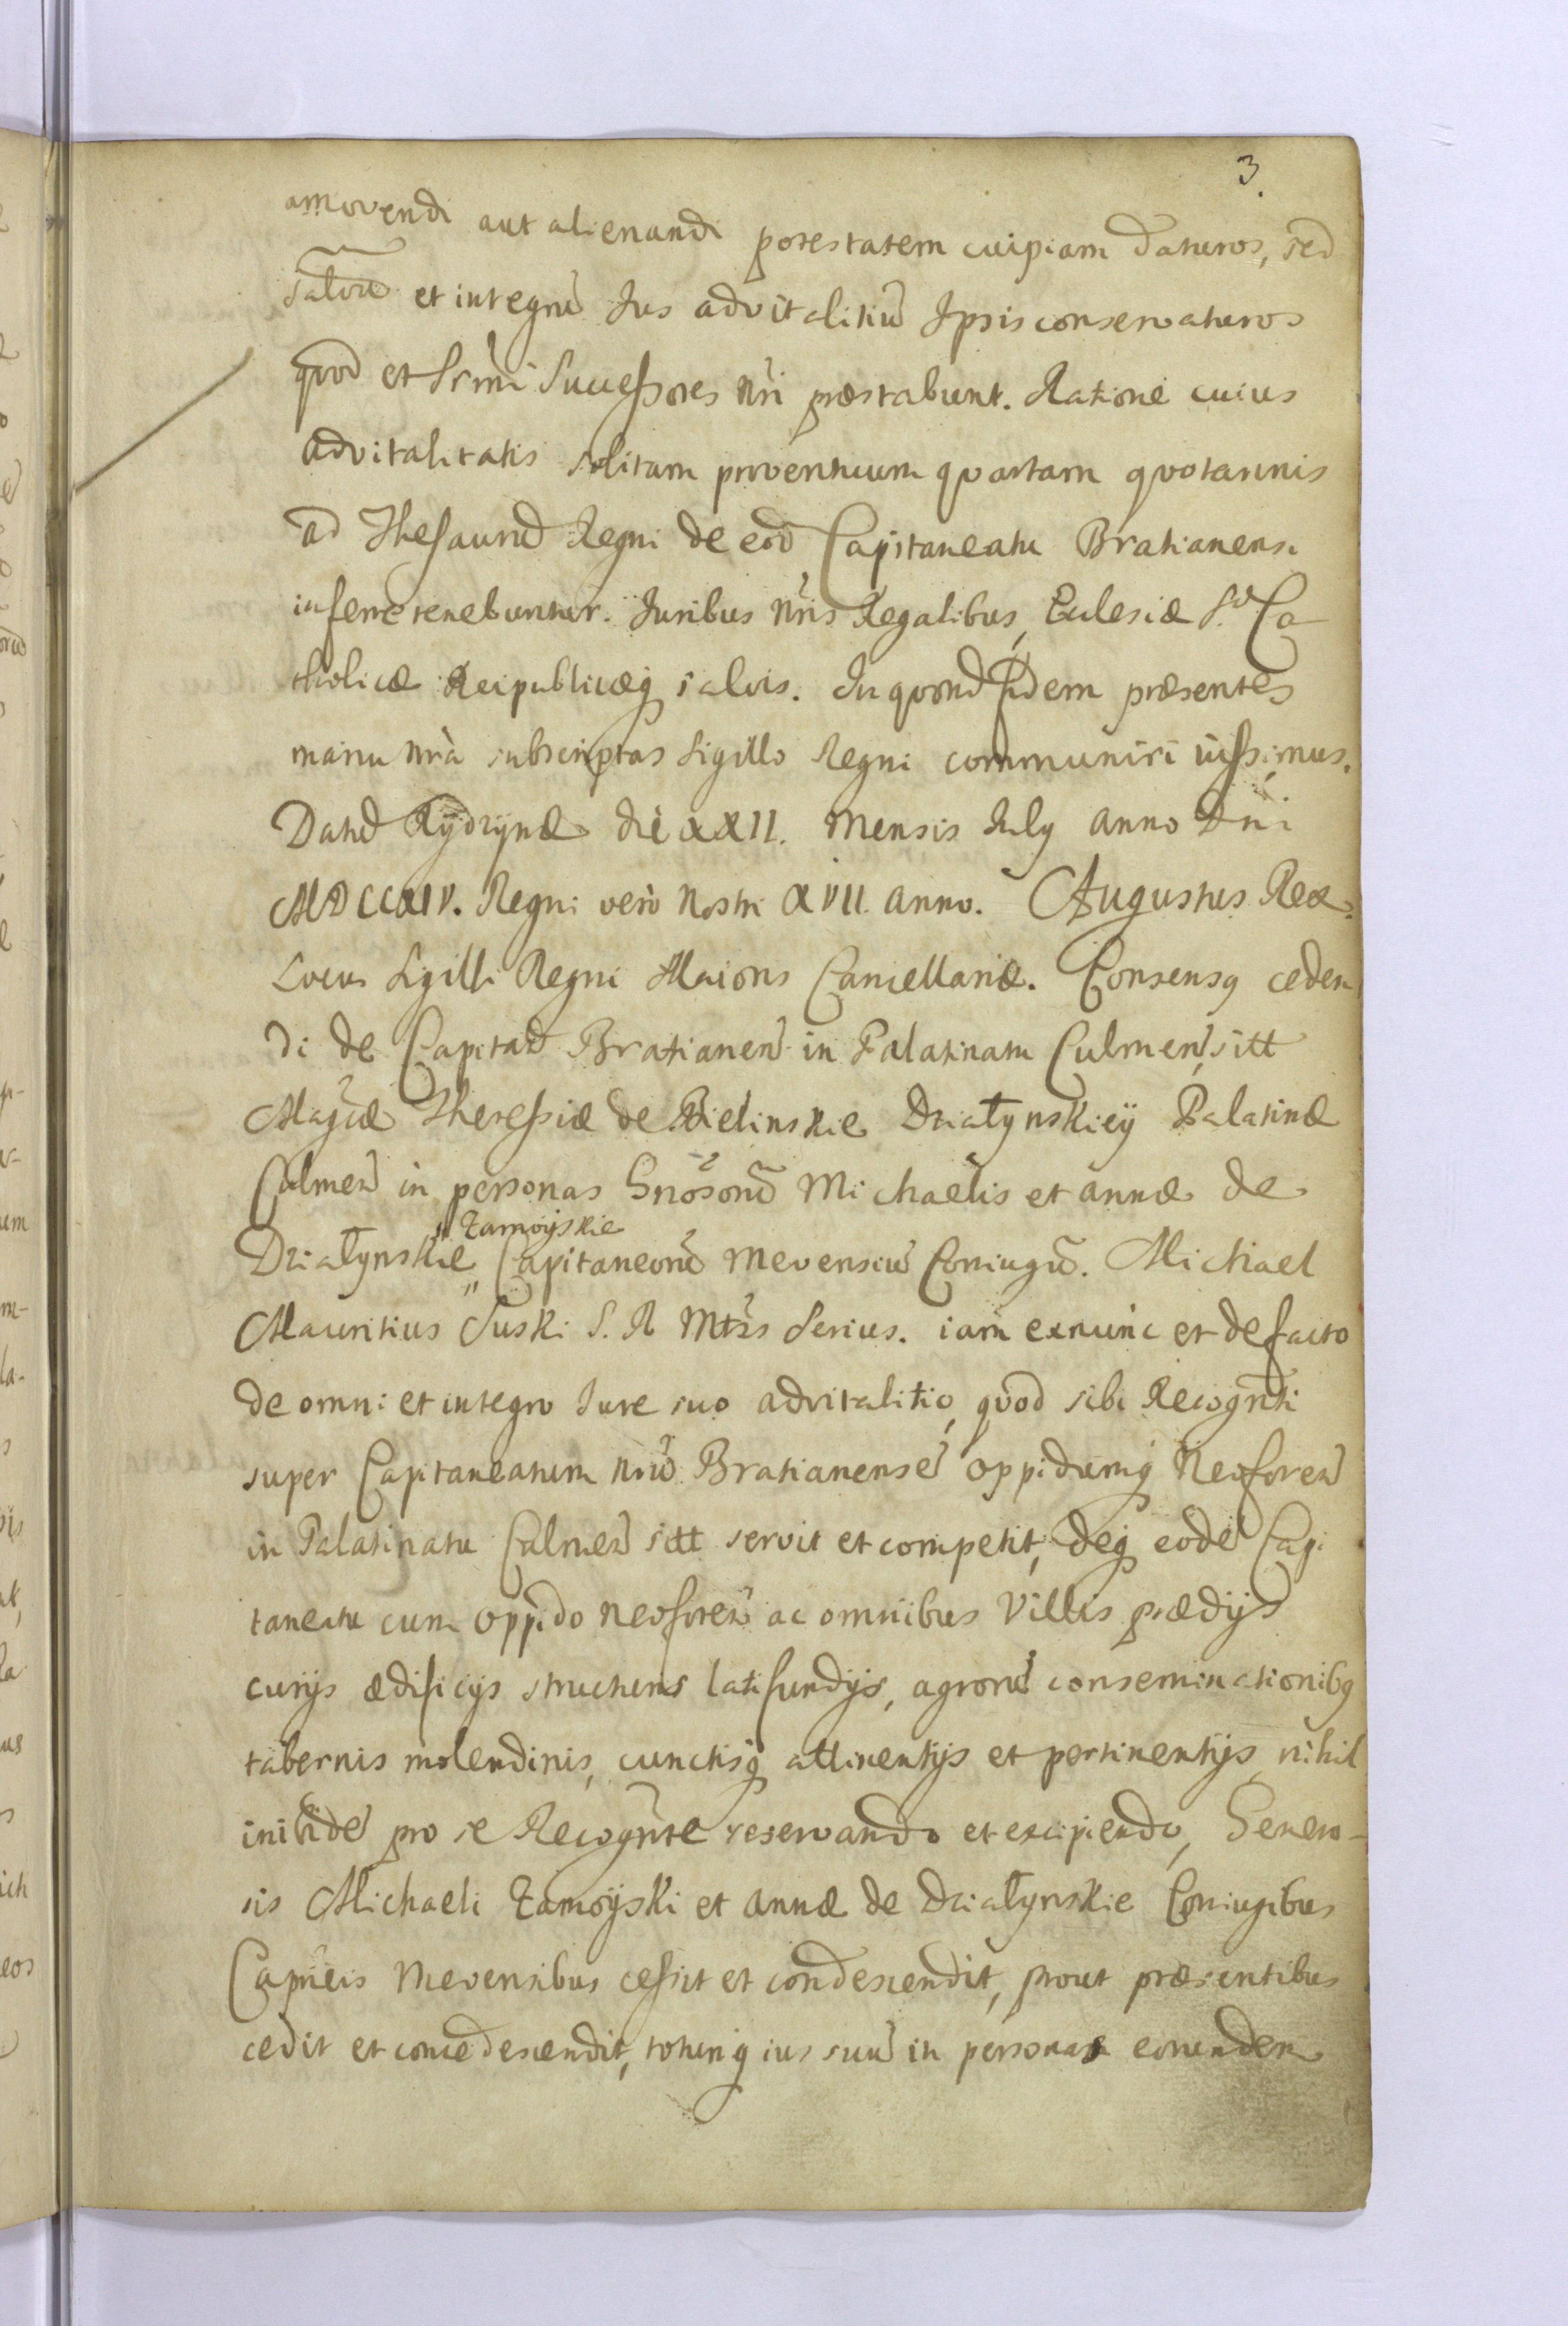 3.
amovendi aut alienandi potestatem cuipiam daturos, sed
salvũ et integrũ Jus advitalitiũ Ipsis conservaturos
quod et Srm̃i Successores nr̃i præstabunt. Ratione cuius
advitalitatis solitam proventuum quartam quotannis
ad Thesaurũ Regni de eod̃ Capitaneatu Bratianensi
inferre tenebuntur. Juribus nr̃is Regalibus, Eclesiæ S. Ca
tholicæ Reipublicæq salvis. In quorũ fidem præsentes
manu nr̃a subscriptas Sigillo Regni communiri iussimus.
Datũ Rydzynæ die XXII. Mensis July anno Dn̄i
MDCCXIV. Regni verò nostri XVII anno. Augustus Rex.
Locus Sigilli Regni Maioris Cancellariæ. Consensq ceden
di de Capitan̄ Bratianen̄ in Palatinatu Culmen̄, sitt
Magc̃æ Theressiæ de Bielinskie Działynskieÿ Palatinæ
Culmen̄ in personas Gnõsorũ Michaelis et annæ de
Działynskie " Zamoÿskie Capitaneorũ Mevensiũ Coniugũ. Michael
Mauritius Suski S. R Mtt̃is Serius. iam exnunc et defacto
de omni et integro Jure suo advitalitio, quod sibi Recogñti
super Capitaneatum nr̃ũ Bratianensẽ oppidumq Neoforen̄
in Palatinatu Culmen̄ sitt servit et competit, deq eodẽ Capi
taneatu cum oppido neoforen̄ ac omnibus Villis prædijs
curijs ædificijs structuris latifundijs, agrorũ conseminationibq
tabernis molendinis, cunctisq attinentijs et pertinentijs nihil
inibidẽ pro se Recogñte reservando et excipiendo, Genero-
sis Michaeli Zamoÿski et annæ de Działynskie Coniugibus
Capñeis Mevensibus cessit et condescendit, prout præsentibus
cedit et concedescendit, totumq ius suũ in personas eorundem